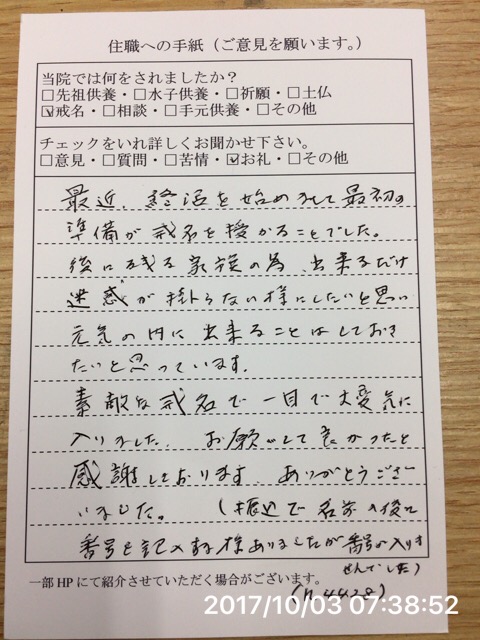 住職への手紙（ご意見を願います。）
当院では何をされましたか？
□先祖供養・□水子供養・□祈願・□土仏
☑戒名・□相談・□手元供養・□その他
チェックをいれ詳しくお聞かせ下さい。
□意見・□質問・□苦情・☑お礼・□その他
最近、終活を始めまして最初の
準備が戒名を授かることでした。
後に残る家族の為、出来るだけ
迷惑が掛らない様にしたいと思い
元気の内に出来ることはしておき
たいと思っています。
素敵な戒名で一目で大変気に
入りました。お願いして良かったと
感謝しております。ありがとうござ
いました。（振込で名前の後に
番号を記入する様ありましたが番号が入りま
せんでした）
一部HPにて紹介させていただく場合がございます。
(n.4428)
2017/10/03 07:38:52